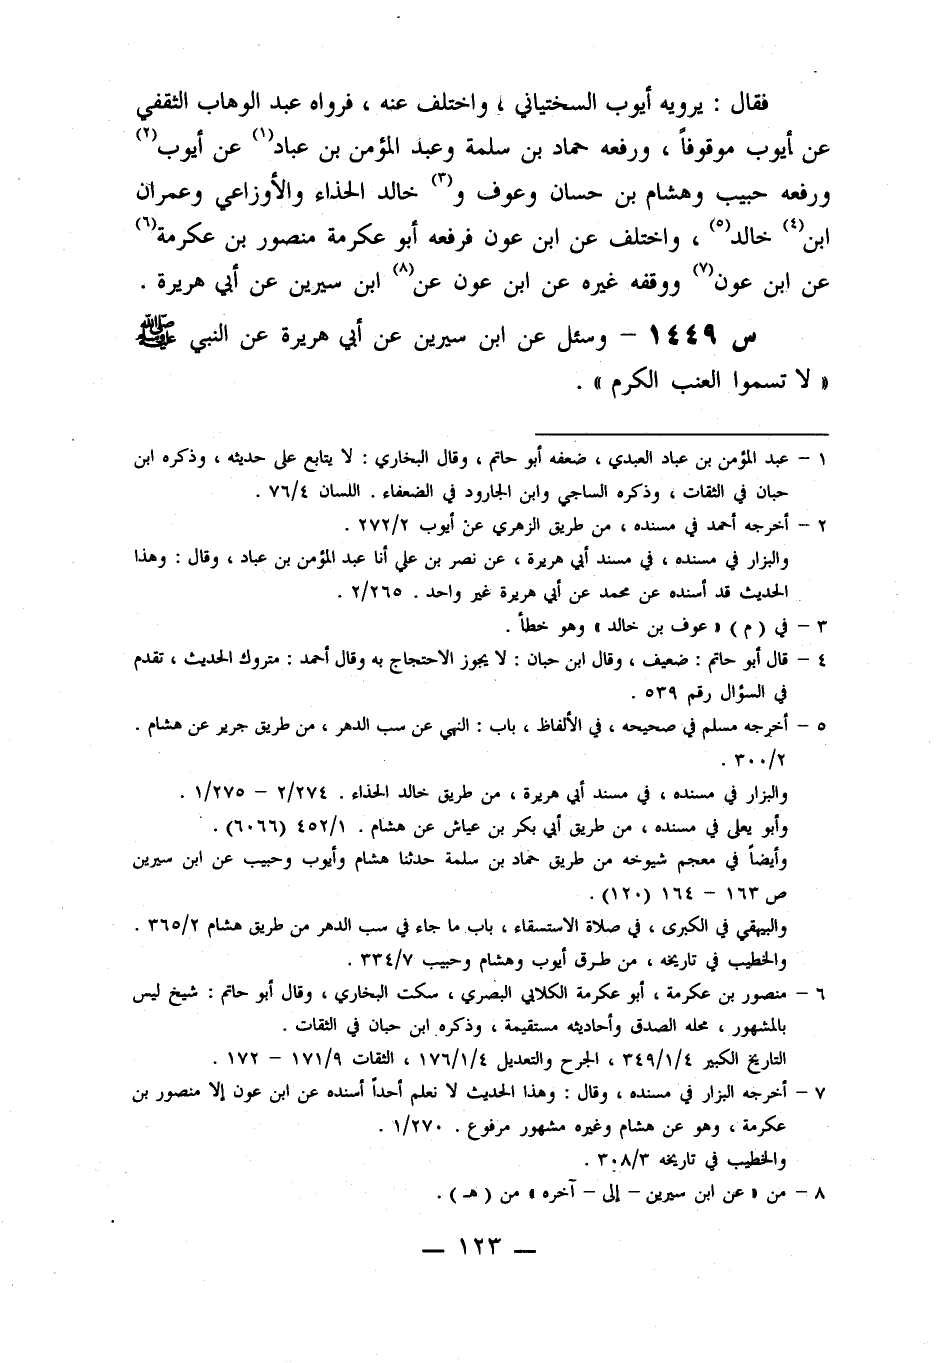 فقال : يرويه أيوب السختياني ، واختلف عنه ، فرواه عبد الوهاب الثقفي
عن أيوب موقوفاً ، ورفعه حماد بن سلمة وعبد المؤمن بن عباد(١) عن أيوب(٢)
ورفعه حبيب وهشام بن حسان وعوف و(٣) خالد الحذاء والأوزاعي وعمران
ابن(٤) خالد(٥) ، واختلف عن ابن عون فرفعه أبو عكرمة منصور بن عكرمة(٦)
عن ابن عون(٧) ووقفه غيره عن ابن عون عن(٨) ابن سيرين عن أبي هريرة .
س ١٤٤٩ – وسئل عن ابن سيرين عن أبي هريرة عن النبي ﷺ
« لا تسموا العنب الكرم » .
١ – عبد المؤمن بن عباد العبدي ، ضعفه أبو حاتم ، وقال البخاري : لا يتابع على حديثه ، وذكره ابن
حبان في الثقات ، وذكره الساجي وابن الجارود في الضعفاء . اللسان ٧٦/٤ .
٢ – أخرجه أحمد في مسنده ، من طريق الزهري عن أيوب ٢٧٢/٢ .
والبزار في مسنده ، في مسند أبي هريرة ، عن نصر بن علي أنا عبد المؤمن بن عباد ، وقال : وهذا
الحديث قد أسنده عن محمد عن أبي هريرة غير واحد . ٢/٢٦٥ .
٣ – في ( م ) « عوف بن خالد » وهو خطأ .
٤ – قال أبو حاتم : ضعيف ، وقال ابن حبان : لا يجوز الاحتجاج به وقال أحمد : متروك الحديث ، تقدم
في السؤال رقم ٥٣٩ .
٥ – أخرجه مسلم في صحيحه ، في الألفاظ ، باب : النهي عن سب الدهر ، من طريق جرير عن هشام .
٣٠٠/٢ .
والبزار في مسنده ، في مسند أبي هريرة ، من طريق خالد الحذاء . ٢/٢٧٤ – ١/٢٧٥ .
وأبو يعلى في مسنده ، من طريق أبي بكر بن عياش عن هشام . ٤٥٢/١ (٦٠٦٦) .
وأيضاً في معجم شيوخه من طريق حماد بن سلمة حدثنا هشام وأيوب وحبيب عن ابن سيرين
ص ١٦٣ – ١٦٤ (١٢٠) .
والبيهقي في الكبرى ، في صلاة الاستسقاء ، باب ما جاء في سب الدهر من طريق هشام ٣٦٥/٢ .
والخطيب في تاريخه ، من طرق أيوب وهشام وحبيب ٣٣٤/٧ .
٦ – منصور بن عكرمة ، أبو عكرمة الكلابي البصري ، سكت البخاري ، وقال أبو حاتم : شيخ ليس
بالمشهور ، محله الصدق وأحاديثه مستقيمة ، وذكره ابن حبان في الثقات .
التاريخ الكبير ٣٤٩/١/٤ ، الجرح والتعديل ١٧٦/١/٤ ، الثقات ١٧١/٩ – ١٧٢ .
٧ – أخرجه البزار في مسنده ، وقال : وهذا الحديث لا نعلم أحداً أسنده عن ابن عون إلا منصور بن
عكرمة ، وهو عن هشام وغيره مشهور مرفوع . ١/٢٧٠ .
والخطيب في تاريخه ٣٠٨/٣ .
٨ – من « عن ابن سيرين – إلى – آخره » من ( هـ ) .
— ١٢٣ —